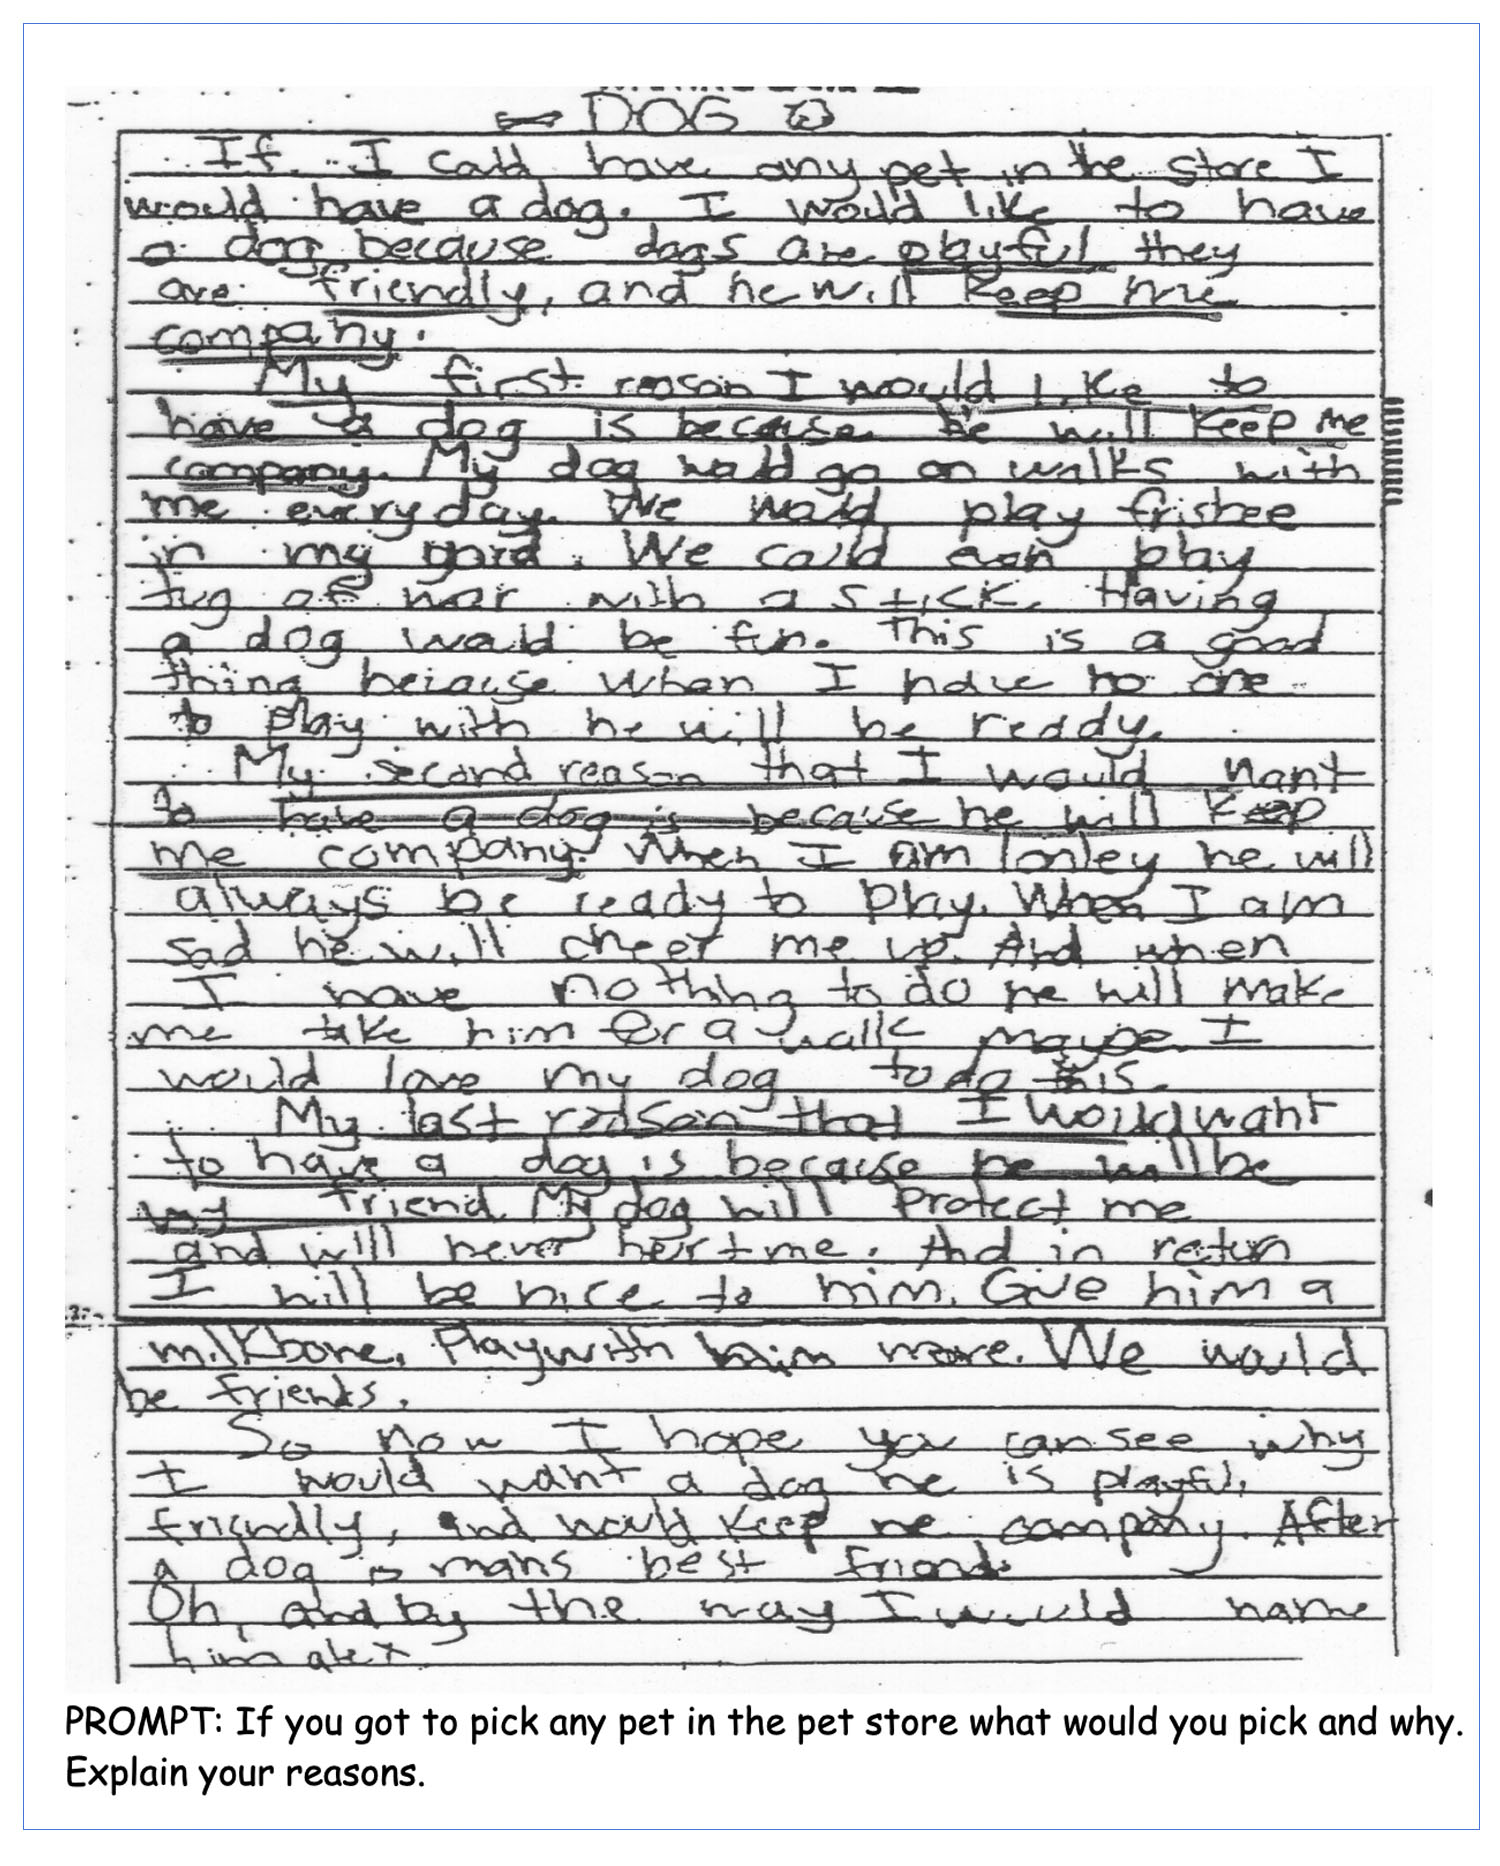 DOG
If I could have any pet in the store I
would have a dog. I would like to have
a dog because dogs are playful they
are friendly, and he will keep me
company.
My first reason I would like to
have a dog is because he will keep me
company. My dog would go on walks with
me everyday. We would play frisbee
in my yard. We could even play
tug of war with a stick. Having
a dog would be fun. This is a good
thing because when I have no one
to play with he will be ready.
My second reason that I would want
to have a dog is because he will keep
me company. When I am lonley he will
always be ready to play. When I am
sad he will cheer me up. And when
I have nothing to do he will make
me take him for a walk maybe I
would love my dog to do this.
My last reason that I would want
to have a dog is because he will be
my friend. My dog will protect me
and will never heirt me. And in return
I will be nice to him. Give him a
milkbone. Play with him more. We would
be friends.
So now I hope you can see why
I would want a dog he is playful,
friendly, and would keep me company. After
a dog is mans best friend.
Oh, and by the way I would name
him alex
PROMPT: If you got to pick any pet in the pet store what would you pick and why.
Explain your reasons.